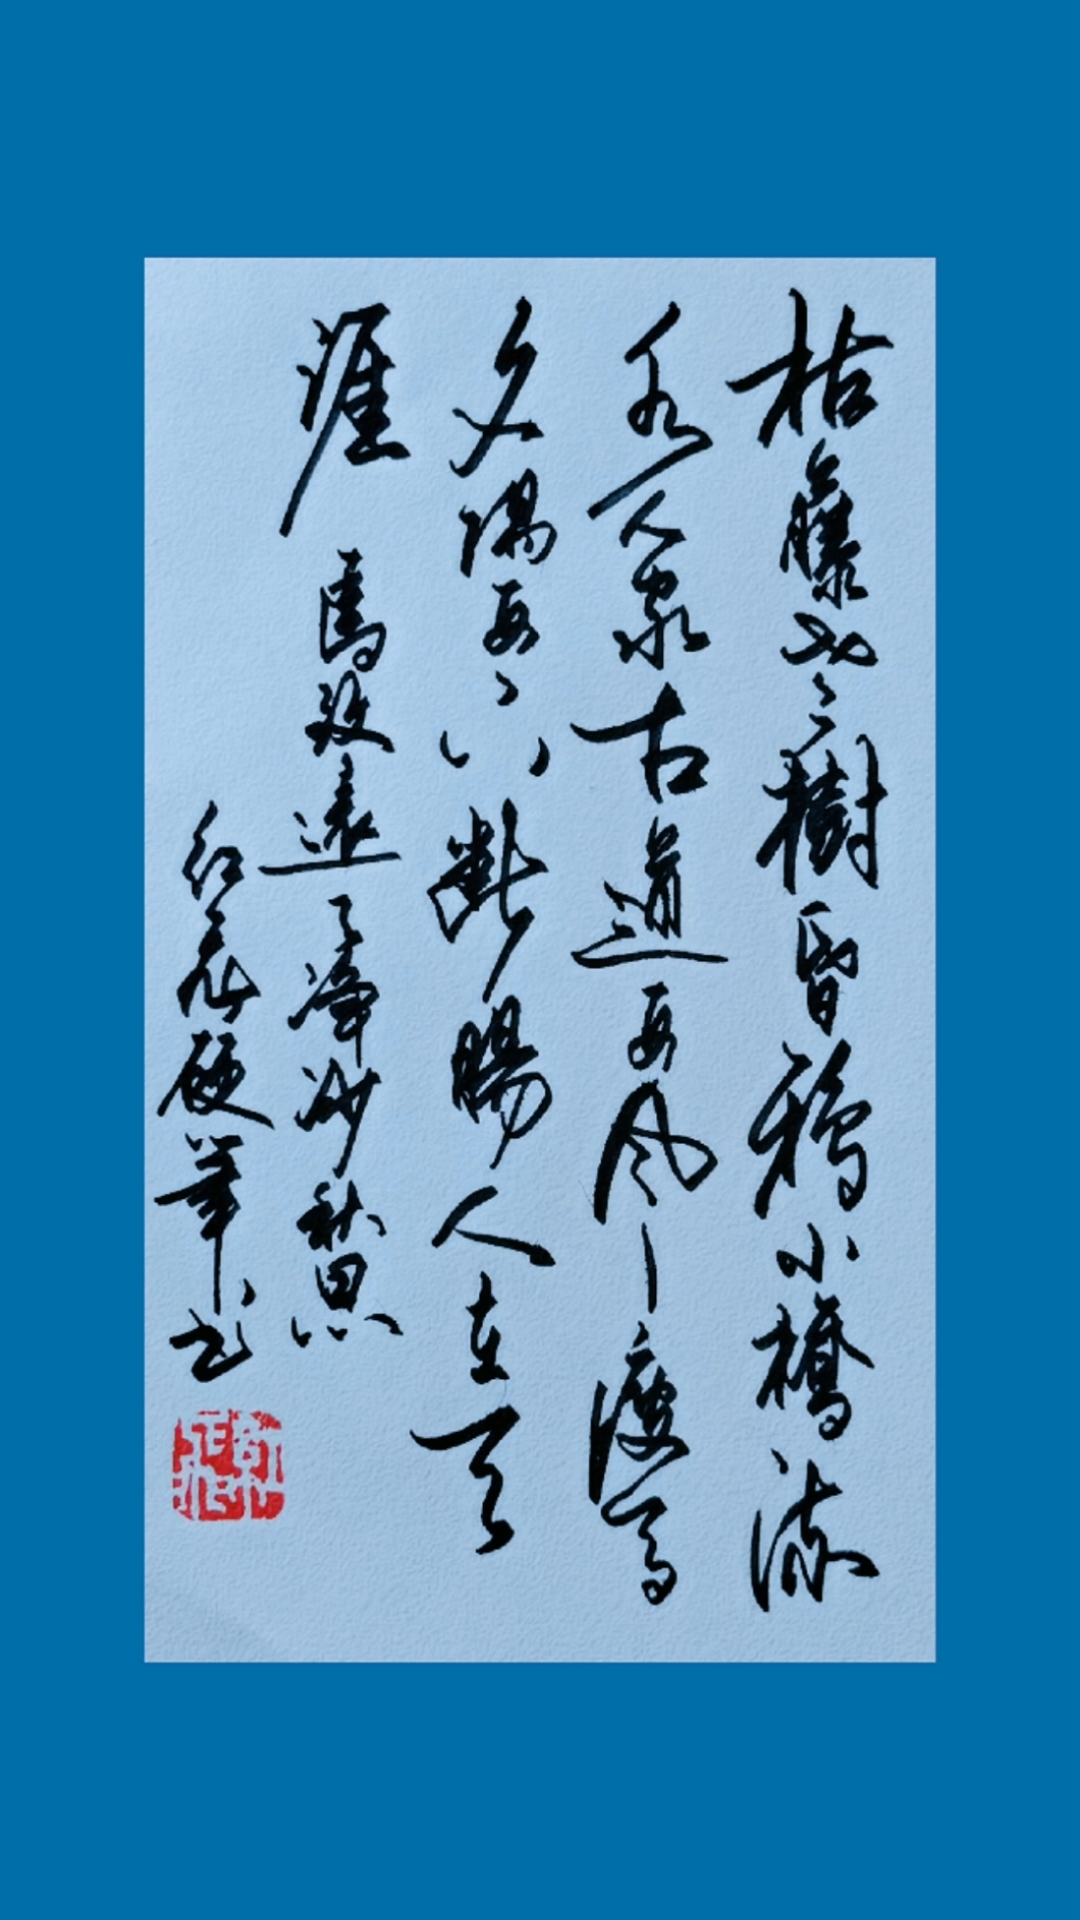 枯藤老樹昏鴉小橋流
水人家古道西風瘦馬
夕陽西下斷腸人在天
涯 馬致遠天淨沙秋思
红硬筆书